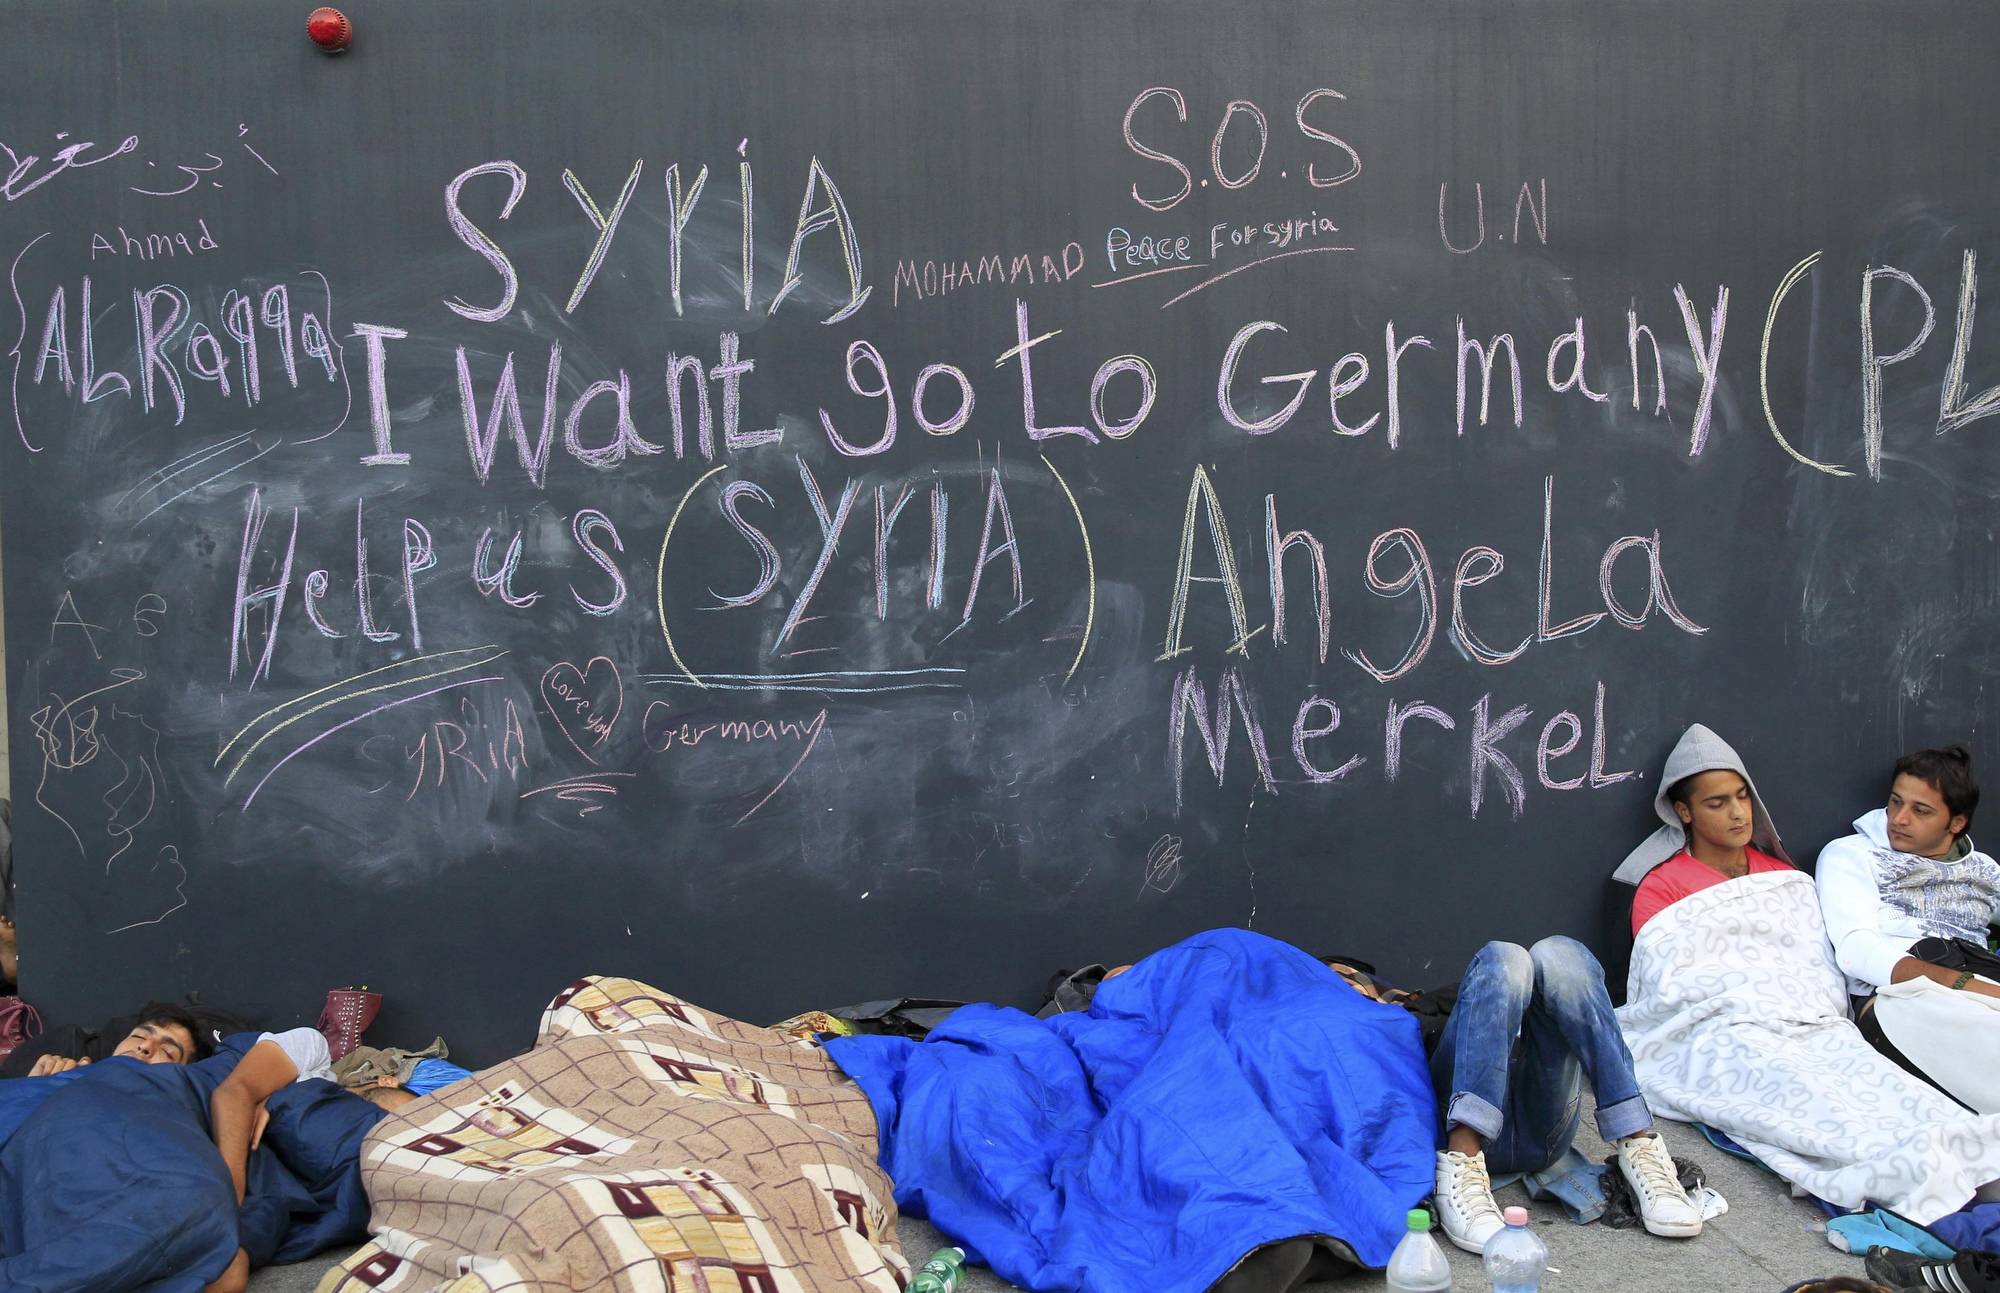 S.O.S
U.N
أبن
Ahmad
SYriA
MOHAMMAD Peace For syria
{ALRaqqa}
I Want go to Germany (PL
Help us (SYrIA) AngeLa
MerkeL
A 6
SYRiA Love you Germany